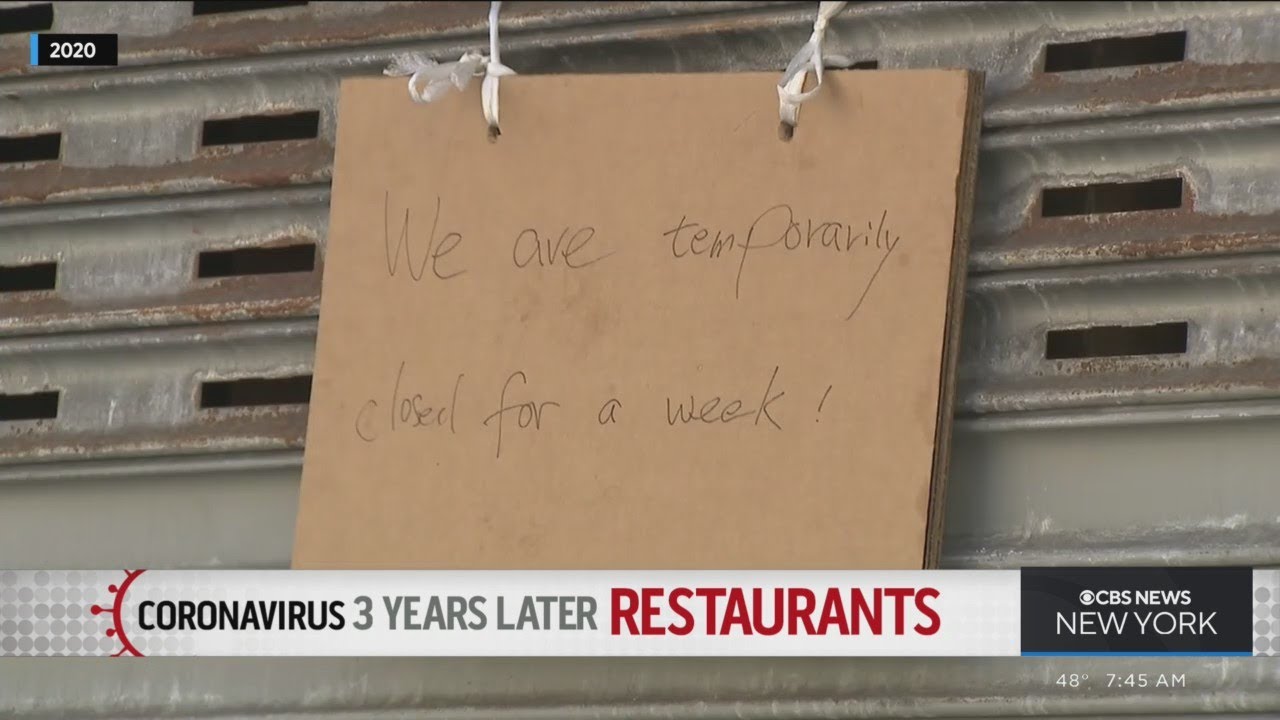 2020
We are temporarily
closed for a week!
CORONAVIRUS 3 YEARS LATER RESTAURANTS
CBS NEWS
NEW YORK
48° 7:45 AM